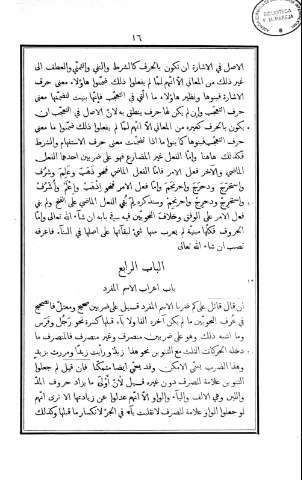 ١٦
الاصل فى الاشارة ان تكون بالحرف كالشرط والنفى والتمنّى والعطف الى
غير ذلك من المعانى الّا انّهم لمّا لم يفعلوا ذلك ضمّنوا هؤلاء معنى حرف
الاشارة فبنوها ونظير هؤلاء ما الّتى فى التعجّب فإنّها بنيت لتضمّنها معنى
حرف التعجّب وإن لم يكن لها حرف ينطق به لانّ الاصل فى التعجّب ان
يكون بالحرف كغيره من المعانى الّا انّهم لمّا لم يفعلوا ذلك ضمّنوا ما معنى
حرف التعجّب فبنوها كما بنوا ما اذا تضمّنت معنى حرف الاستفهام والشرط
فكذلك هاهنا وأمّا الفعل غير المضارع فهو على ضربين احدهما الفعل
الماضى والآخر فعل الامر فأمّا الفعل الماضى فنحو ذَهَبَ وعَلِمَ وشَرُفَ
واستخرج ودحرج واحرنجم وأمّا فعل الامر فنحو اذْهَبْ واعْلَمْ واشْرُفْ
واستخرِجْ ودحرِجْ واحرنجِمْ وسنذكر لم بُنى الفعل الماضى على الفتح ولم بنى
فعل الامر على الوقف وخلاف النحويّين فيه فى بابه ان شاء الله تعالى وأمّا
الحروف فكلّها مبنيّة لم يعرب منها شىء لبقائها على اصلها فى البناء فاعرفه
تصب ان شاء الله تعالى
الباب الرابع
باب اعراب الاسم المفرد
ان قال قائل على كم ضربا الاسم المفرد قيل على ضربين صحيح ومعتلّ فالصحيح
فى عرف النحويّين ما لم يكن آخره الفا ولا ياء قبلها كسرة نحو رَجُل وفَرَس
وما اشبه ذلك وهو على ضربين منصرف وغير منصرف فالمنصرف ما
دخله الحركات الثلاث مع التنوين نحو هذا زيدٌ ورأيت زيدًا ومررت بزيدٍ
وهذا الضرب يسمّى الامكن وقد يسمّى ايضا متمكّنا فان قيل لم جعلوا
التنوين علامة للصرف دون غيره قيل لأنّ أَوْلَى ما يزاد حروف المدّ
واللين وهى الالف والياء والواو الّا انّهم عدلوا عن زيادتها الا ترى انّهم
لو جعلوا الواو علامة للصرف لانقلبت ياء فى الجرّ لانكسار ما قبلها وكذلك